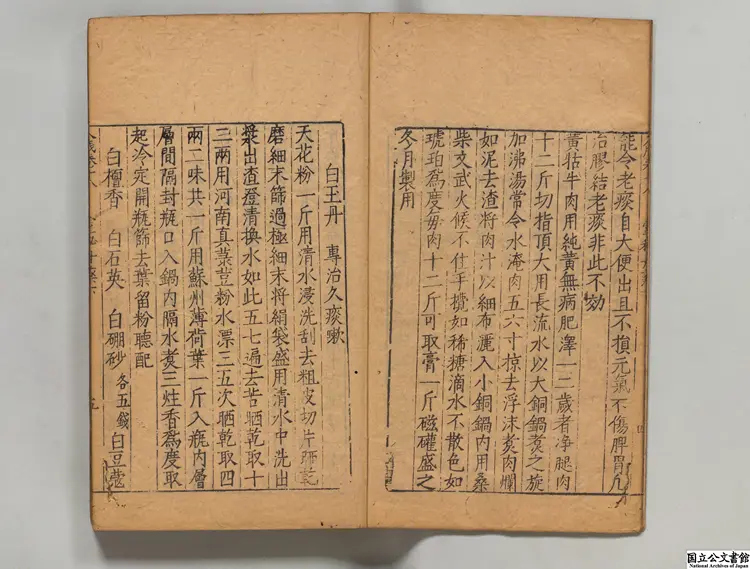 能令老痰自大便出且不損元氣不傷脾胃凡
治膠結老痰非此不効
黃牯牛肉用純黃無病肥澤一二歲者净腿肉
十二斤切指頂大用長流水以大銅鍋煑之旋
加沸湯常令水淹肉五六寸掠去浮沫煑肉爛
如泥去渣將肉汁以細布濾入小銅鍋內用桑
柴文武火候不住手攪如稀糖滴水不散色如
琥珀爲度每肉十二斤可取膏一斤磁礶盛之
冬月製用
白玉丹 專治久痰嗽
天花粉一斤用清水浸洗刮去粗皮切片晒乾
磨細末篩過極細末將絹袋盛用清水中洗出
漿出渣澄清換水如此五七遍去苦晒乾取十
三兩用河南真菉荳粉水漂三五次晒乾取四
兩二味共一斤用蘇州薄荷葉一斤入瓶內層
層間隔封瓶口入鍋內隔水煑三炷香爲度取
起冷定開瓶篩去葉留粉聽配
白檀香 白石英 白硼砂 各五錢 白豆蔻
五
国立公文書館
National Archives of Japan